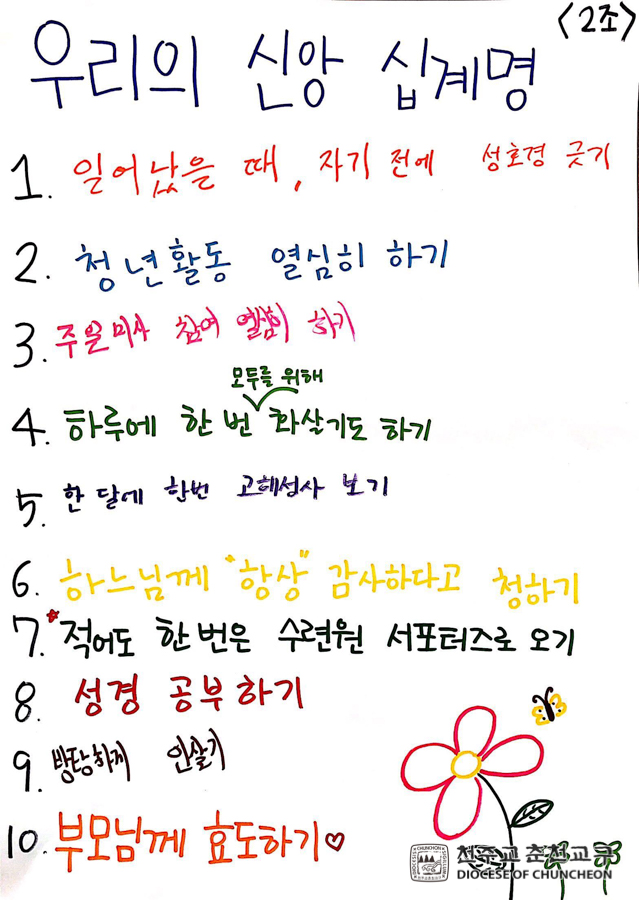 <2조>
우리의 신앙 십계명
1. 일어났을 때, 자기 전에 성호경 긋기
2. 청년활동 열심히 하기
3. 주일미사 참여 열심히 하기
모두를 위해
4. 하루에 한 번 ∨ 화살기도 하기
5. 한 달에 한번 고해성사 보기
6. 하느님께 "항상" 감사하다고 청하기
7. *적어도 한 번은 수련원 서포터즈로 오기
8. 성경 공부하기
9. 방탕하게 안살기
10. 부모님께 효도하기♡
천주교 춘천교구
DIOCESE OF CHUNCHEON